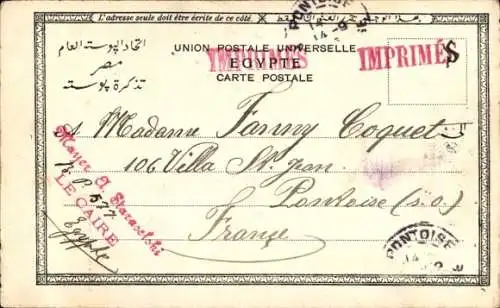 L'adresse seule doit être écrite de ce côté.
PONTOISE
14 -9
UNION POSTALE UNIVERSELLE
اتحاد البوستة العام
IMPRIMÉS
IMPRIMÉS
EGYPTE
مصر
CARTE POSTALE
تذكرة بوستة
A Madame Fanny Coquet
106 Villa St. Jean
Pontoise (S.O.)
France
Mayer A.
B.P. 577
LE CAIRE
Egypte
PONTOISE
14